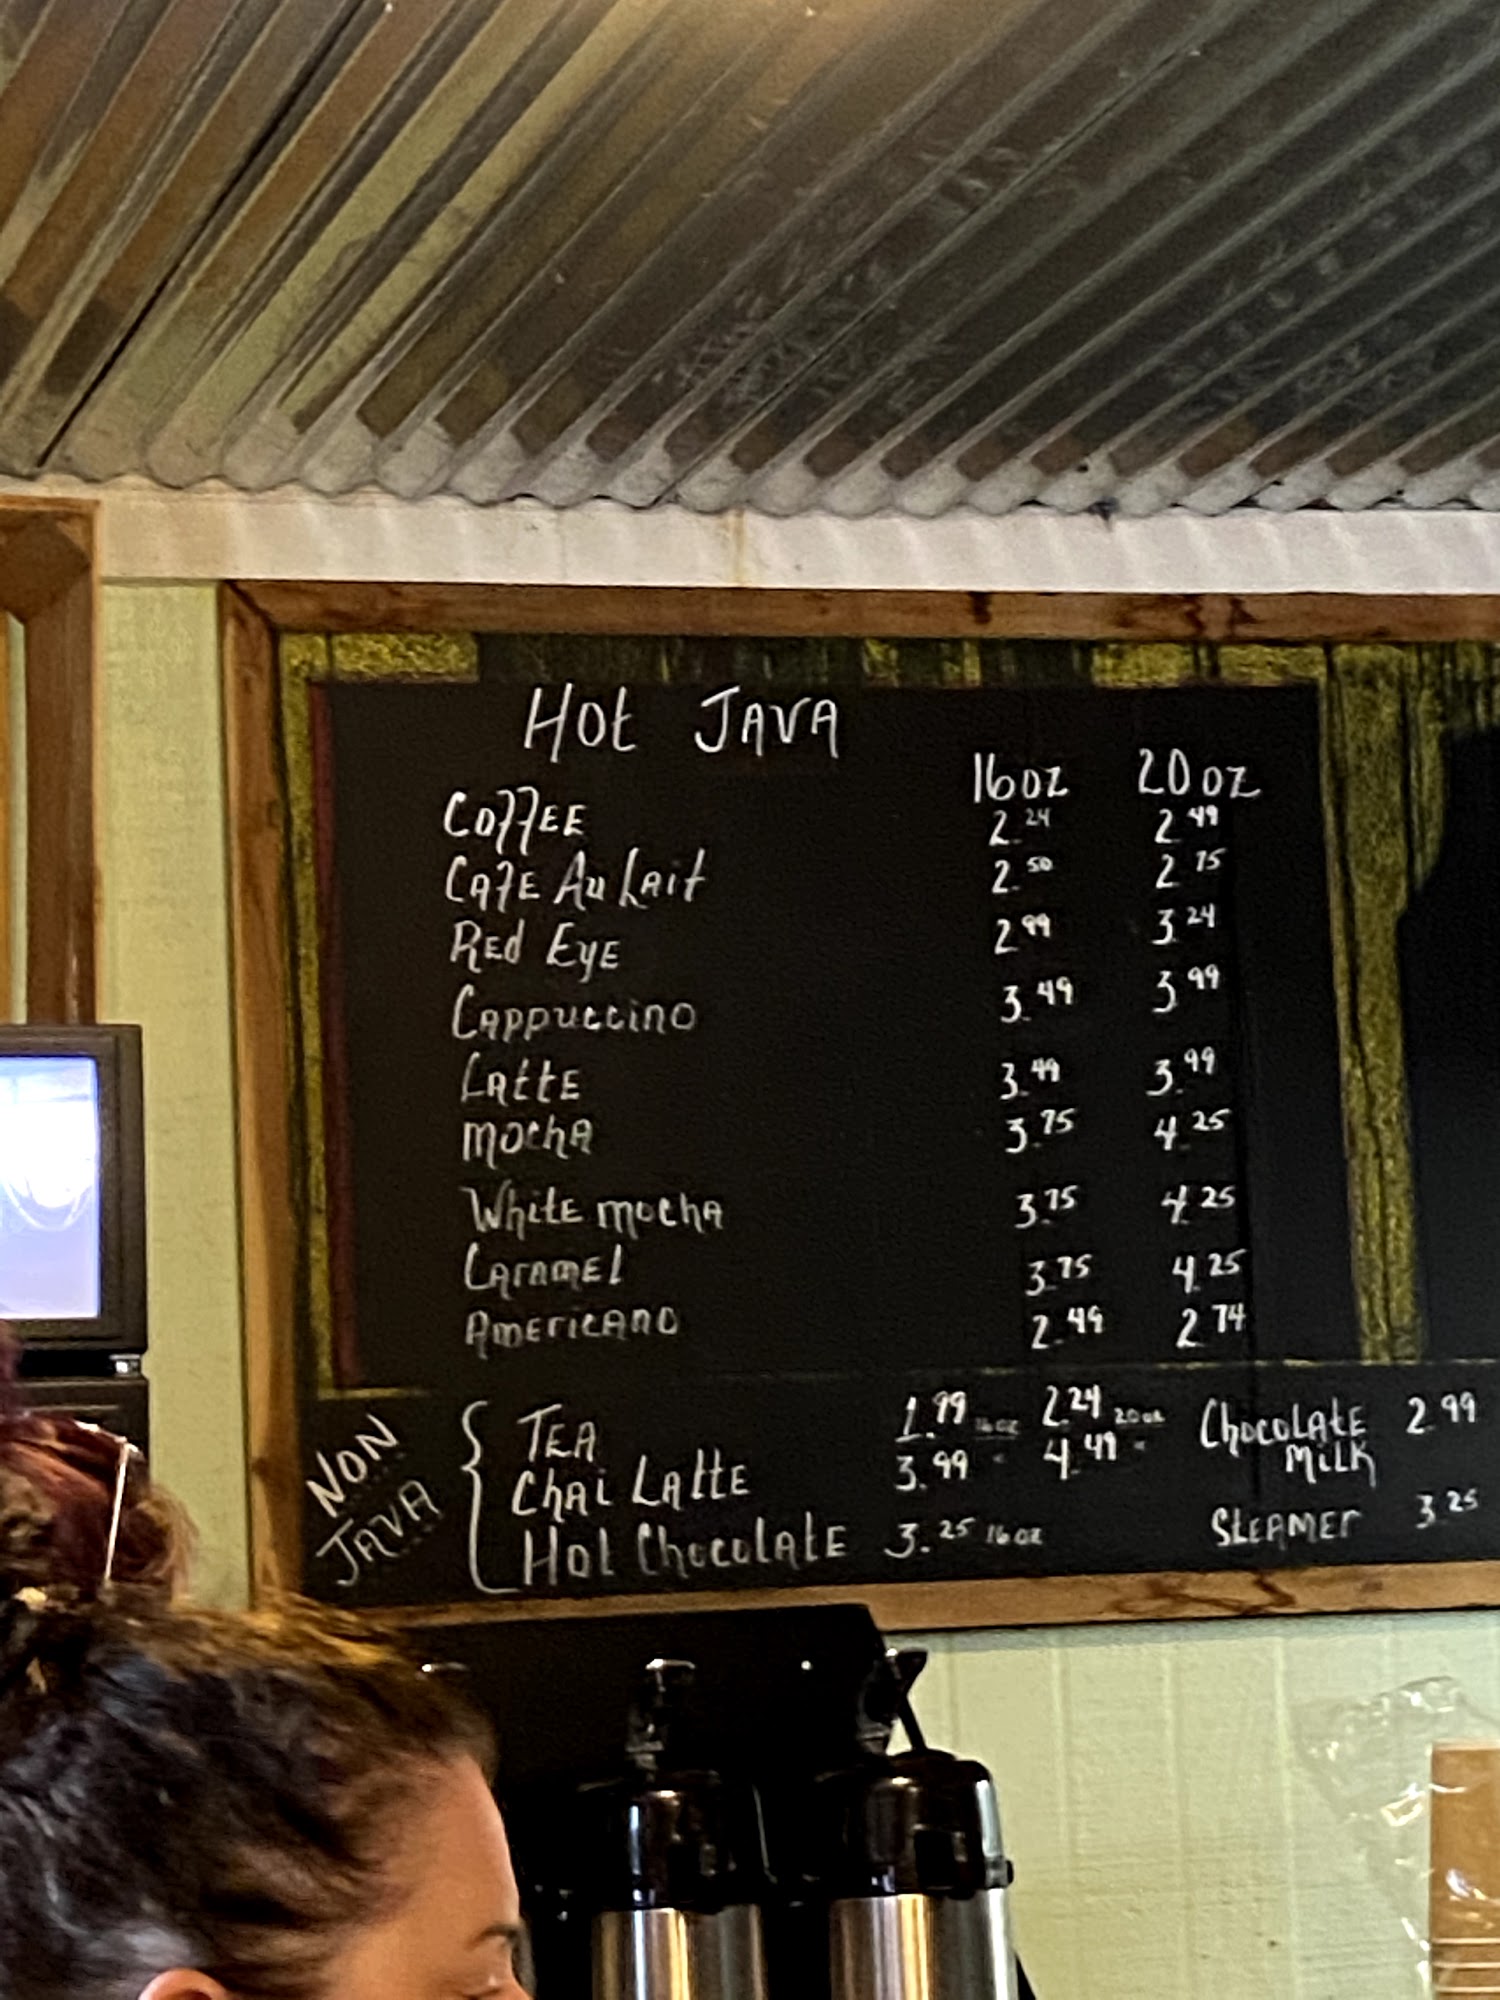 Hot JAVA
16oz 20oz
Coffee 2.24 2.49
Cafe Au Lait 2.50 2.75
Red Eye 2.99 3.24
Cappuccino 3.49 3.99
Latte 3.49 3.99
Mocha 3.75 4.25
White mocha 3.75 4.25
Caramel 3.75 4.25
Americano 2.49 2.74
NON JAVA
Tea 1.99 16oz 2.24 20oz
Chai Latte 3.99 " 4.49 "
Hot Chocolate 3.25 16oz
Chocolate 2.99
Milk
Steamer 3.25